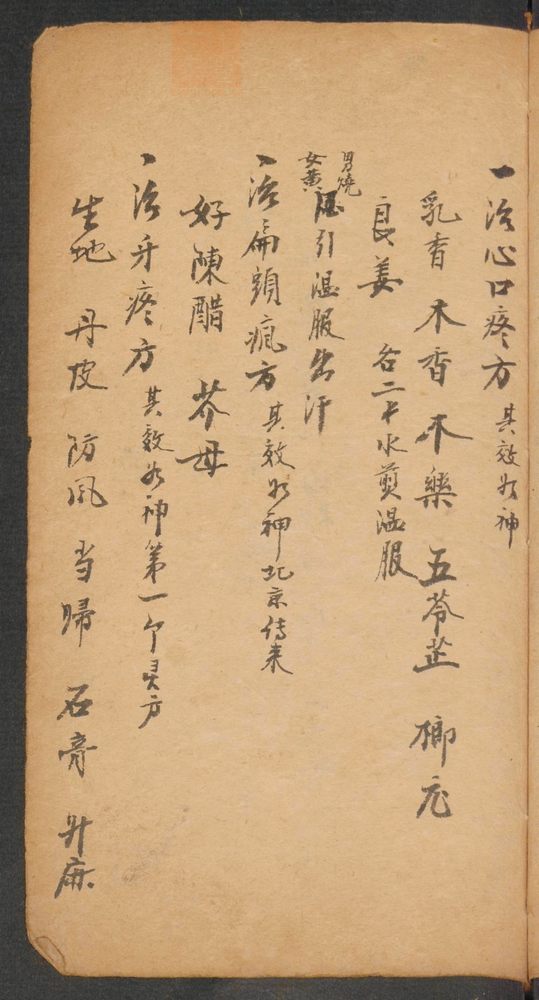 一治心口疼方 其效如神
乳香 木香 木藥 五苓芷 榔尼
良姜 各二千水煎温服
男燒
女黄
酒引温服出汗
一治偏頭瘋方 其效如神北京传来
好陳醋 芥母
一治牙疼方 其效如神第一个灵方
生地 丹皮 防风 当歸 石膏 升麻